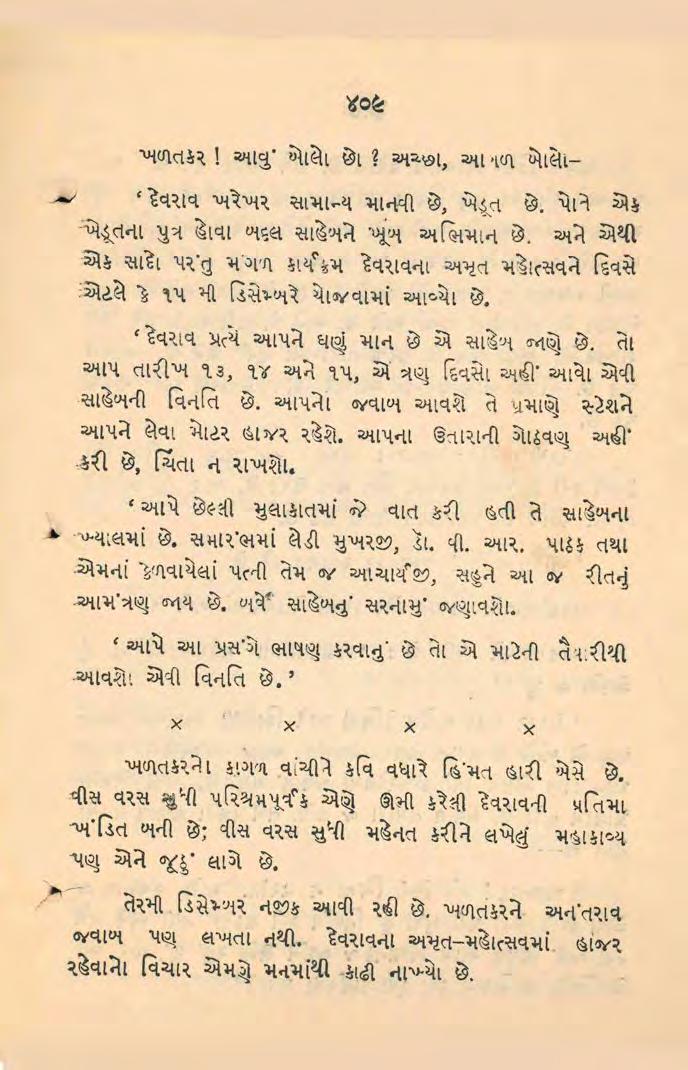 ૪૦૯
ખળતકર ! આવું બોલો છો ? અચ્છા, આગળ બોલો–
‘ દેવરાવ ખરેખર સામાન્ય માનવી છે, ખેડૂત છે. પોતે એક
ખેડૂતના પુત્ર હોવા બદ્દલ સાહેબને ખૂબ અભિમાન છે. અને એથી
એક સાદો પરંતુ મંગળ કાર્યક્રમ દેવરાવના અમૃત મહોત્સવને દિવસે
એટલે કે ૧૫ મી ડિસેમ્બરે યોજવામાં આવ્યો છે.
‘ દેવરાવ પ્રત્યે આપને ઘણું માન છે એ સાહેબ જાણે છે. તો
આપ તારીખ ૧૩, ૧૪ અને ૧૫, એ ત્રણ દિવસો અહીં આવો એવી
સાહેબની વિનતિ છે. આપનો જવાબ આવશે તે પ્રમાણે સ્ટેશને
આપને લેવા મોટર હાજર રહેશે. આપના ઉતારાની ગોઠવણ અહીં
કરી છે, ચિંતા ન રાખશો.
‘ આપે છેલ્લી મુલાકાતમાં જે વાત કરી હતી તે સાહેબના
ખ્યાલમાં છે. સમારંભમાં લેડી મુખરજી, ડૉ. વી. આર. પાઠક તથા
એમનાં કેળવાયેલાં પત્ની તેમ જ આચાર્યજી, સહુને આ જ રીતનું
આમંત્રણ જાય છે. બર્વે સાહેબનું સરનામું જણાવશો.
‘ આપે આ પ્રસંગે ભાષણ કરવાનું છે તો એ માટેની તૈયારીથી
આવશો એવી વિનતિ છે. ’
× × × ×
ખળતકરનો કાગળ વાંચીને કવિ વધારે હિંમત હારી બેસે છે.
વીસ વરસ સુધી પરિશ્રમપૂર્વક એણે ઊભી કરેલી દેવરાવની પ્રતિમા
ખંડિત બની છે; વીસ વરસ સુધી મહેનત કરીને લખેલું મહાકાવ્ય
પણ એને જૂઠું લાગે છે.
તેરમી ડિસેમ્બર નજીક આવી રહી છે. ખળતકરને અનંતરાવ
જવાબ પણ લખતા નથી. દેવરાવના અમૃત–મહોત્સવમાં હાજર
રહેવાનો વિચાર એમણે મનમાંથી કાઢી નાખ્યો છે.